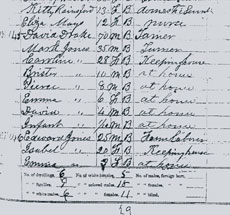 Kitty Rainsford 13 F B Domestic Serv
Eliza Mays 12 F B nurse
David Drake 70 M B Farmer
Mark Jones 35 M B Farmer
Caroline " 28 F B Keeping house
Brister " 10 M B at home
Pierce " 8 M B at home
Emma " 6 F B at home
David " 4 M B at home
Infant " M B at home
Edward Jones 25 M B Farm Laborer
Isabel " 20 F B Keeping house
Emma " F B at home
No. of dwellings, 6 No. of white females, 5 No. of males, foreign born,
" families, " colored males, 18
" males, " females, 11 " blind,